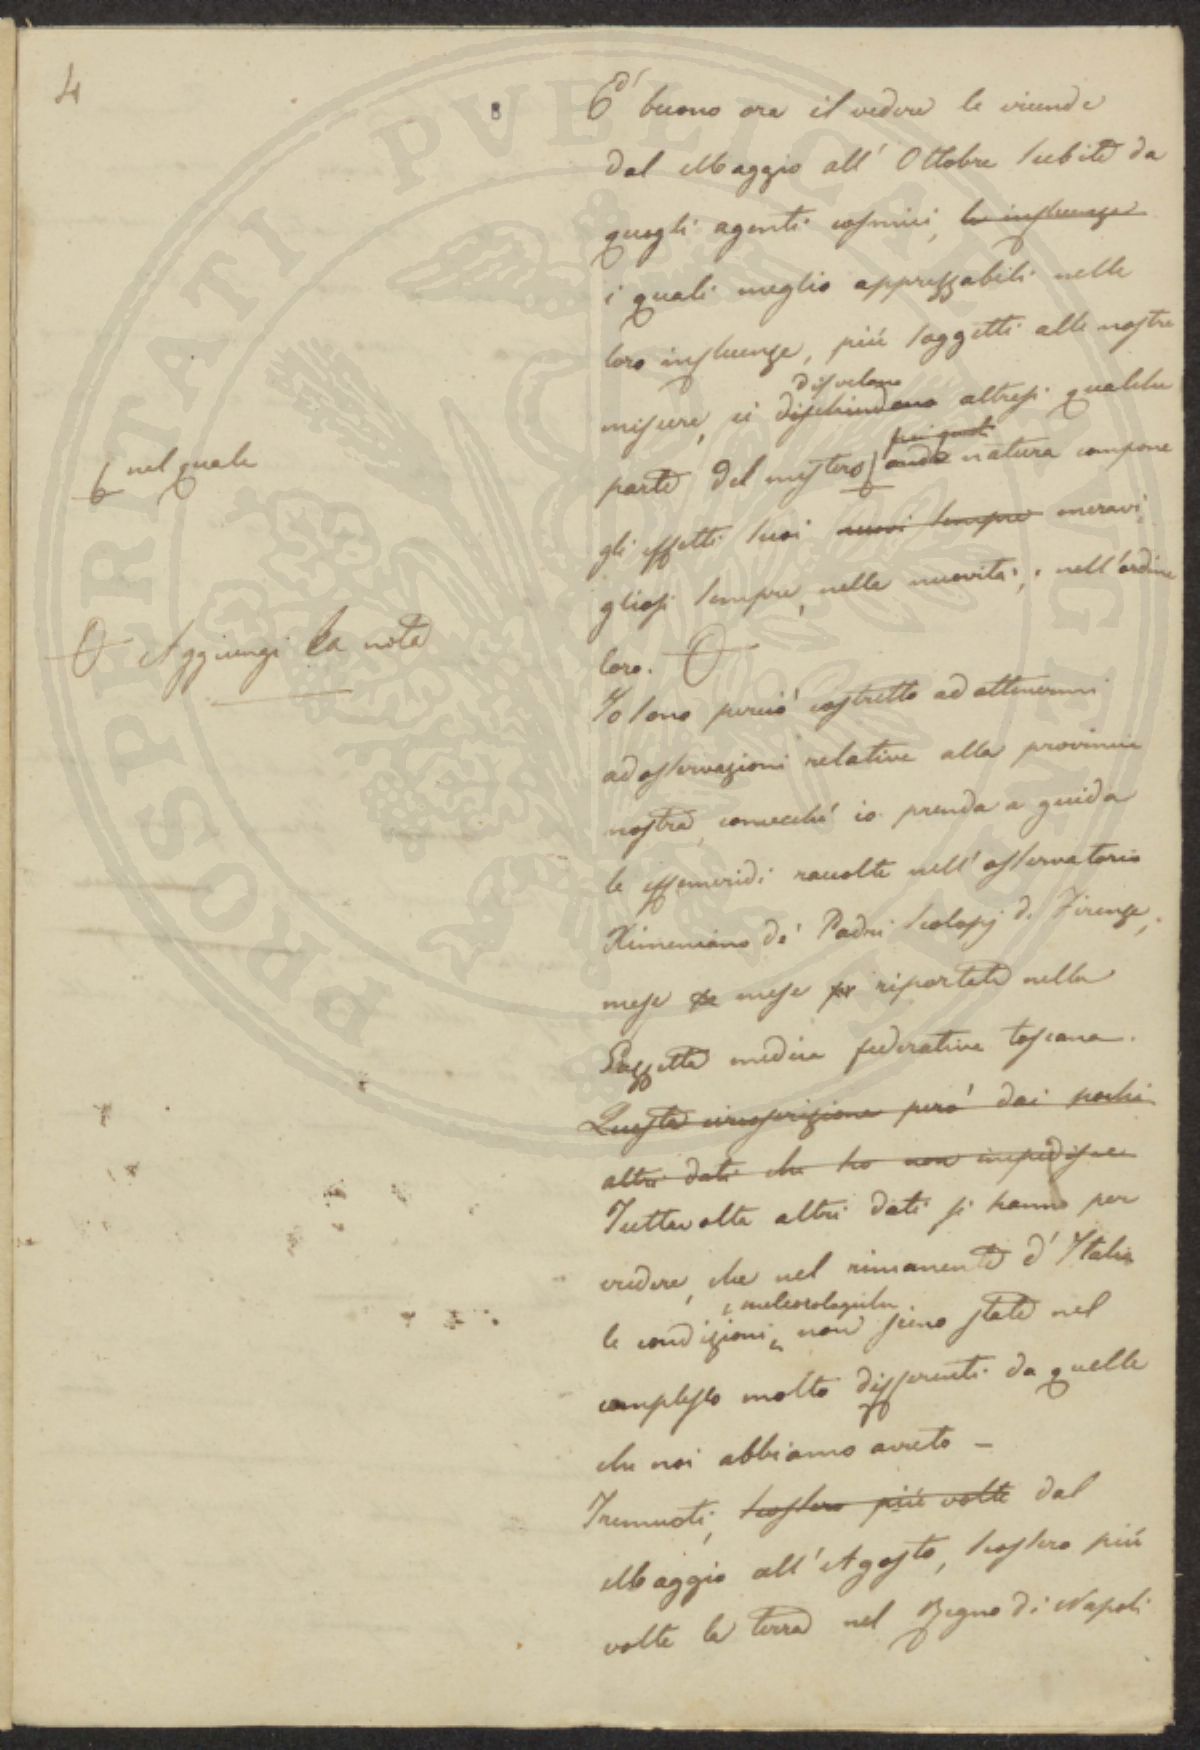 4
8
E' buono ora il vedere le vicende
dal Maggio all' Ottobre subite da
quegli agenti cosmici, le influenze
i quali meglio apprezzabili nelle
loro influenze, più soggetti alle nostre
disvelano
misure, ci dischiudono altresì qualche
pei quali
parte del mistero onde natura compone
nel quale
gli effetti suoi nuovi sempre meravi
gliosi sempre, nella novità, e nell'ordine
loro.
Aggiungi la nota
Io sono perciò costretto ad attenermi
ad osservazioni relative alla provincia
nostra, comecché io prenda a guida
le effemeridi raccolte nell'osservatorio
Ximeniano de' Padri Scolopj di Firenze,
mese per mese riportate nella
Gazzetta medica federativa toscana.
Questa circoscrizione però dai pochi
altri dati che ho non impedisce
Tuttavolta altri dati si hanno per
credere, che nel rimanente d'Italia
meteorologiche
le condizioni, non sieno state nel
complesso molto differenti da quelle
che noi abbiamo avuto –
Tremuoti, scossero più volte dal
Maggio all'Agosto, scossero più
volte la terra nel Regno di Napoli
PROSPERITATI PVBLICAE